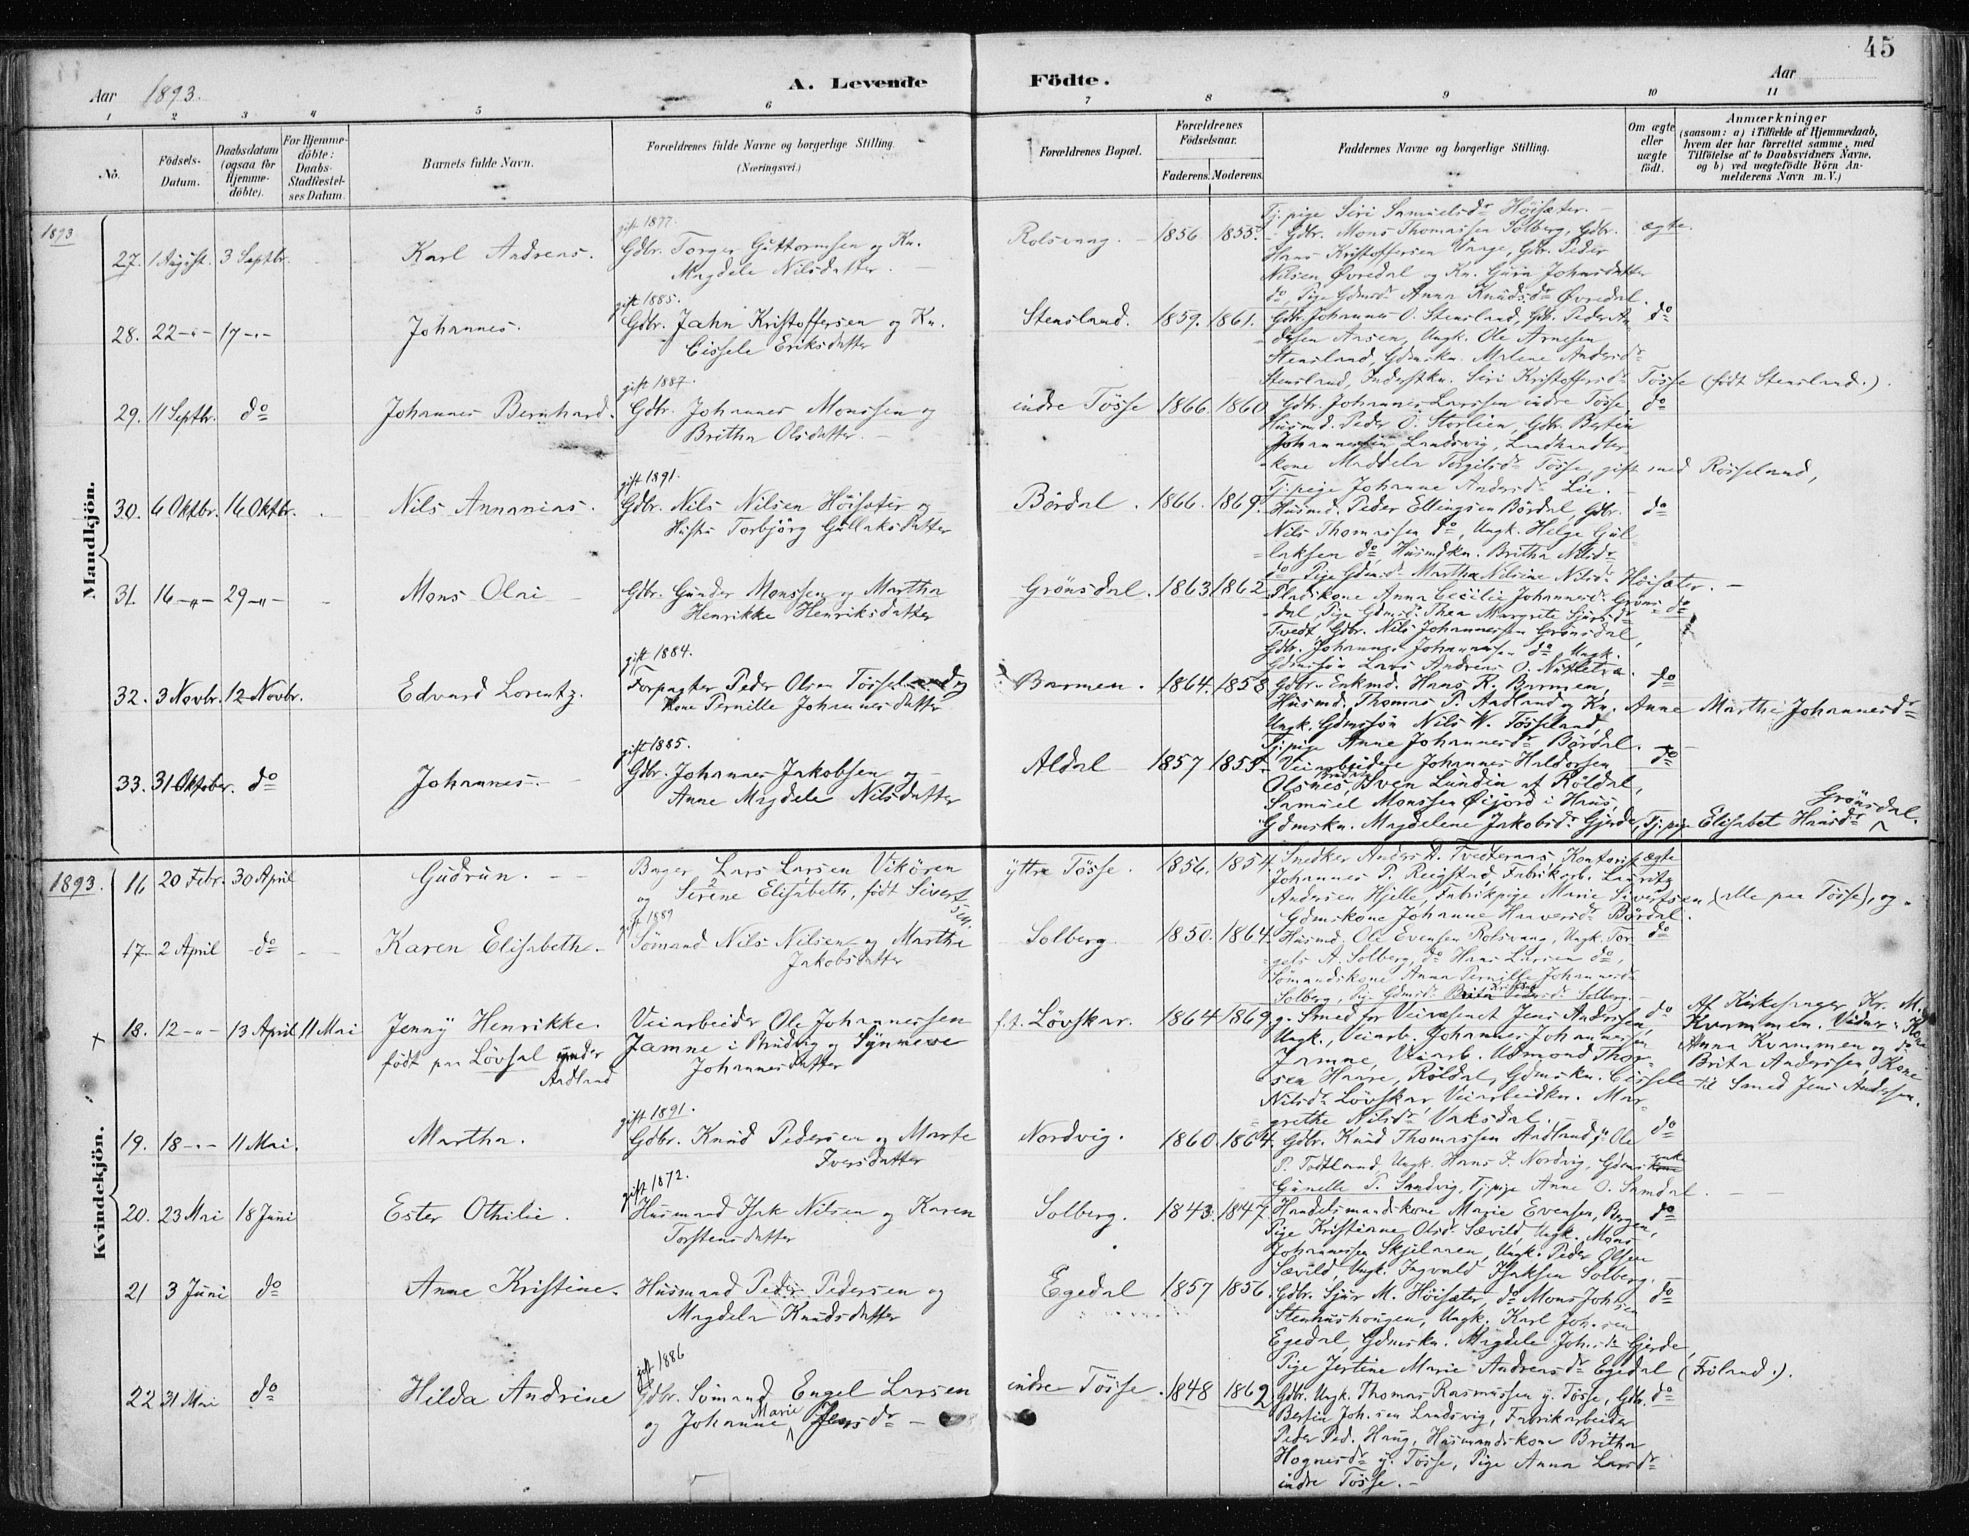 45
Aar 1893.
A. Levende Födte.
Aar
1 2 3 4 5 6 7 8 9 10 11
No.
Födsels-Datum.
Daabsdatum (ogsaa for Hjemme-döbte).
For Hjemme-döbte: Daabs-Stadfæstel-ses Datum.
Barnets fulde Navn.
Forældrenes fulde Navne og borgerlige Stilling (Næringsvei.)
Forældrenes Bopæl.
Forældrenes Födselsaar.
Faderens. Moderens.
Faddernes Navne og borgerlige Stilling.
Om ægte eller uægte födt.
Anmærkninger
(saasom: a) i Tilfælde af Hjemmedaab, hvem der har forrettet samme, med Tilföielse af to Daabsvidners Navne, og b) ved uægtefödte Börn An-melderens Navn m. V.)
Mandkjön.
1893
27. 1 August. 3 Septbr. Karl Andreas.
gift 1877.
Gdbr. Torger Guttormsen og Kn.
Magdele Nilsdatter.
Rolsvaag. 1856 1855.
Tj. pige Siri Samuelsdr Höisæter.
Gdbr. Mons Thomassen Solberg, Gdbr.
Hans Kristoffersen Vaage, Gdbr. Peder
Nilsen Øvredal og Kn. Guri Johnsdatter
do, Pige Gdmsd. Anna Knudsdr Øvredal.
ægte.
28. 22 -"- 17 -"- Johannes.
gift 1885.
Gdbr. Jahn Kristoffersen og Kn.
Cissele Eriksdatter
Stensland. 1859. 1861.
Gdbr. Johannes O. Stensland, Gdbr. Peder An-
dersen Aasen, Ungk. Ole Arnesen
Stensland, Gdmskn. Malene Andersdr
Stensland, Inderstkn. Siri Kristoffersdr Tösse (födt Stensland.).
do
29. 11 Septbr. do Johannes Bernhard.
gift 1887.
Gdbr. Johannes Monssen og
Britha Olsdatter.
indre Tösse 1866. 1860
Gdbr. Johannes Larssen indre Tösse,
Husmd. Peder O. Storlien, Gdbr. Bertin
Johannessen Landsvig, Landhandler-
kone Maddela Torgilsdr Tösse, gift med Röiseland,
Tj. pige Johanne Andersdr Lie.
do
30. 6 Oktbr. 16 Oktbr. Nils Annanias.
gift 1891.
Gdbr. Nils Nilsen Höisæter og
Hustru Torbjörg Gullaksdatter
Bördal. 1866. 1869.
Husmd. Peder Ellingsen Bördal, Gdbr.
Nils Thomassen do, Ungk. Helge Gul-
laksen do, Husmdskn. Britha Nilsdr
do, Pige Gdmsd. Martha Nilsine Nilsdr Höisæter.
do
31. 16 -"- 29 -"- Mons Olai
Gdbr. Gunder Monssen og Martha
Henrikke Henriksdatter
Grönsdal. 1863 1862
Pladskone Anna Cecilie Johannesdr Gröns-
dal, Pige Gdmsd. Thea Margrete Sjursdr
Tvedt, Gdbr. Nils Johannessen Grönsdal,
Gdbr. Johannes Johannessen do, Ungk.
Gdmssön Lars Andreas O.
do
32. 3 Novbr. 12 Novbr. Edvard Lorentz.
gift 1884.
Forpagter Peder Olsen Tösseland og
Kone Pernille Johannesdatter
Barmen. 1864. 1858
Gdbr. Enkmd. Hans K. Barmen,
Husmd. Thomas P. Aadland og Kn. Anne Marthe Johannesdr
Ungk. Gdmssön Nils W. Tösseland,
Tj. pige Anne Johannesdr Bördal.
do
33. 31 Oktober. do Johannes.
gift 1885.
Gdbr. Johannes Jakobsen og
Anne Magdele Nilsdatter
Aldal 1857 1855.
Veiarbeidere Johannes Haldorsen
Olsnes, Sven Lundin af Röldal,
Samuel Monssen Öijord i Haus,
Gdmskn. Magdelene Jakobsdr Gjerde, Tj. pige Elisabet Hansdr Grönsdal.
do
Kvindekjön.
1893.
16 20 Febr. 30 April Gudrun.
Bager Lars Larsen Vikören
og Serene Elisabeth, födt Sivertsen.
ytre Tösse. 1856. 1854.
Snedker Anders A. Tvedternas, Kontorist
Johannes P. Reigstad, Fabrikarb. Lauritz
Andersen Hjelle, Fabrikpige Marie Sivertsen (alle paa Tösse), og
Gdmskone Johanne Haaversdr Bördal.
ægte
17 2 April do Karen Elisabeth.
gift 1889
Sömand Nils Nilsen og Martha
Jakobsdatter
Solberg. 1850. 1864.
Husmd. Ole Evensen Rolsvaag, Ungk. Tor-
gels A. Solberg, do Hans Larsen do,
Sömandskone Anna Pernille Johannesdr
Solberg, Pige Gdmsd. Solberg.
do
x 18. 12 -"- 13 April 11 Mai Jenny Henrikke.
födt paa Lövsal under
Aadland
Veiarbeider Ole Johannessen
Jamne i Bruvig og Synneve
Johannesdatter
f.t. Lövskar. 1864 1869
g. Smed for Veivæsenet Jens Anderssen,
Ungk., Veiarb. Johannes Johannessen
Jamne, Veiarb. Udmond Thor-
sen Haare, Röldal, Gdmskn. Cissele
Nilsdr Lövskar Veiarbeidkn. Mar-
grethe Nilsdr Vaksdal.
do
Af Kirkesanger Kr. M.
Kvammen. Vidner: Kone
Anna Kvammen og do
Brita Anderssen, Kone
til Smed Jens Andersen.
19. 18 -"- 11 Mai. Martha.
gift 1891.
Gdbr. Knud Pedersen og Marte
Iversdatter
Nordvig. 1860. 1864.
Gdbr. Knud Thomassen Aadland, Ole
P. Todtland, Ungk. Hans I. Nordvig, Gdms enke
Gunelle P. Sandvig, Tj. pige Anne O. Samdal.
do
20. 23 Mai 18 Juni Ester Othilie.
gift 1872.
Husmand Isak Nilsen og Karen
Torstensdatter
Solberg. 1843. 1847.
Handelsmandskone Marie Evensen, Bergen,
Pige Kristiane Olsdr Sævild, Ungk. Mons
Johannessen Skjelaaen, Ungk. Peder Olsen
Sævild, Ungk. Ingvald Isaksen Solberg.
do
21 3 Juni do Anne Kristine.
Husmand Peder Pedersen og
Magdela Knudsdatter
Egedal 1857 1856.
Gdbr. Sjur M. Höisæter, do Mons Johsen
Stenhushougen, Ungk. Karl Joh.sen
Egedal, Gdmskn. Magdele Joh.sdr Gjerde,
Pige Jertine Marie Andreasdr Egedal (Fröland.).
do
22 31 Mai do Hilda Andrine
gift 1886
Gdbr. Sömand Engel Larsen
og Johanne Marie Jensdr
indre Tösse. 1848 1862
Gdbr. Ungk. Thomas Rasmussen y. Tösse, Gdbr.
Bertin Joh.sen Landsvig, Fabrikarbeider
Peder Ped. Haug, Husmandskone Britha
Hognesdr y. Tösse, Pige Anna Larsdr
indre Tösse.
do